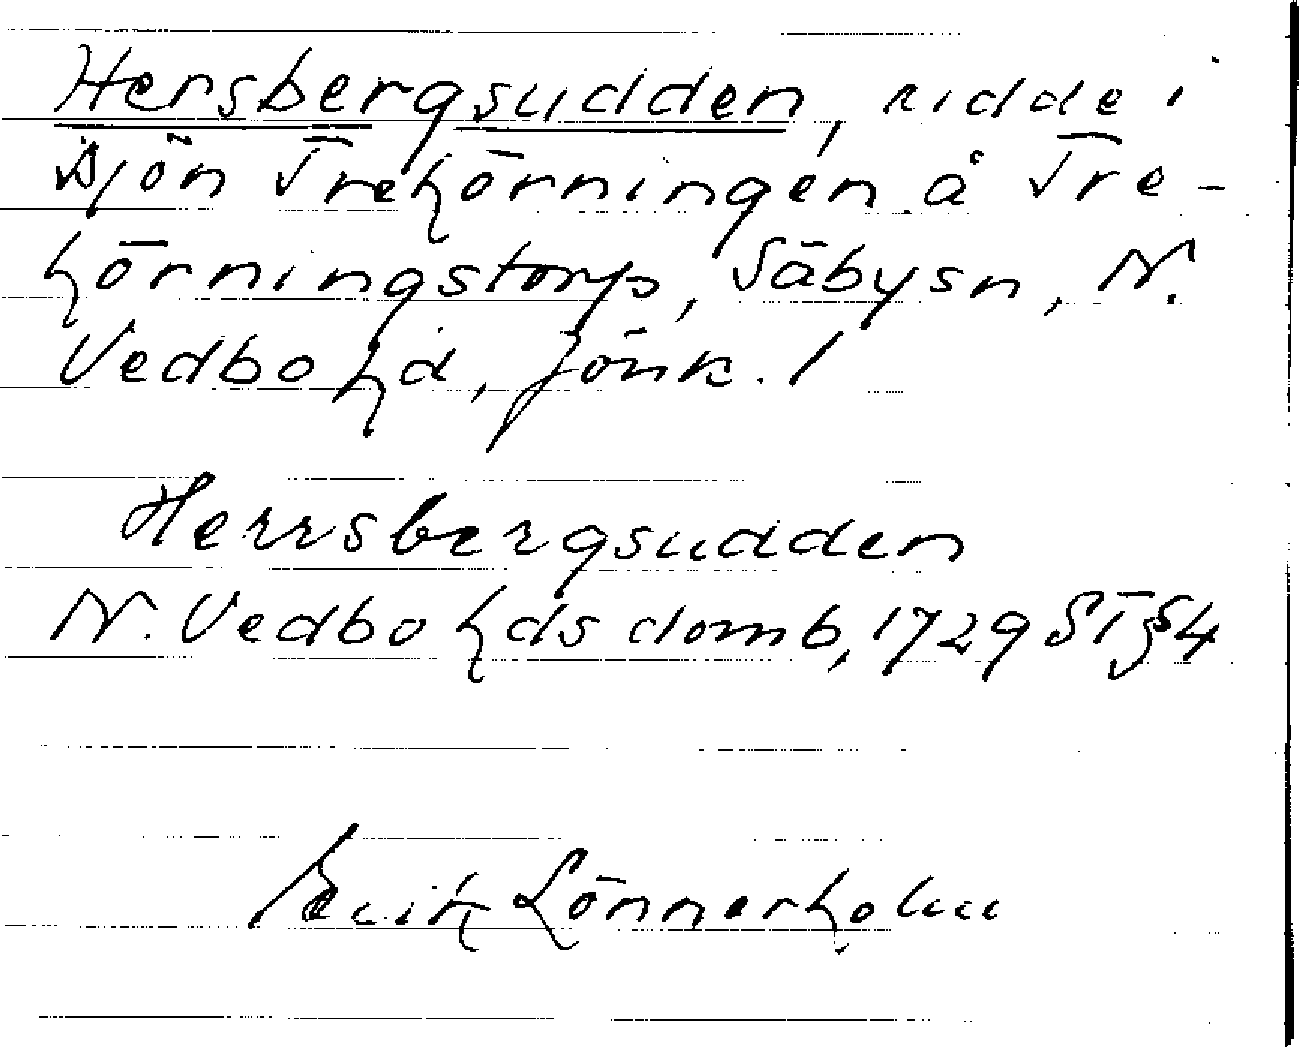 Hersbergsudden, udde i
sjön Trehörningen å Tre-
hörningstorp, Säbysn, N.
Vedbo hd, Jönk. l
Herrsbergsudden
N. Vedbo hds domb, 1729 ST § 4
Erik Lönnerholm